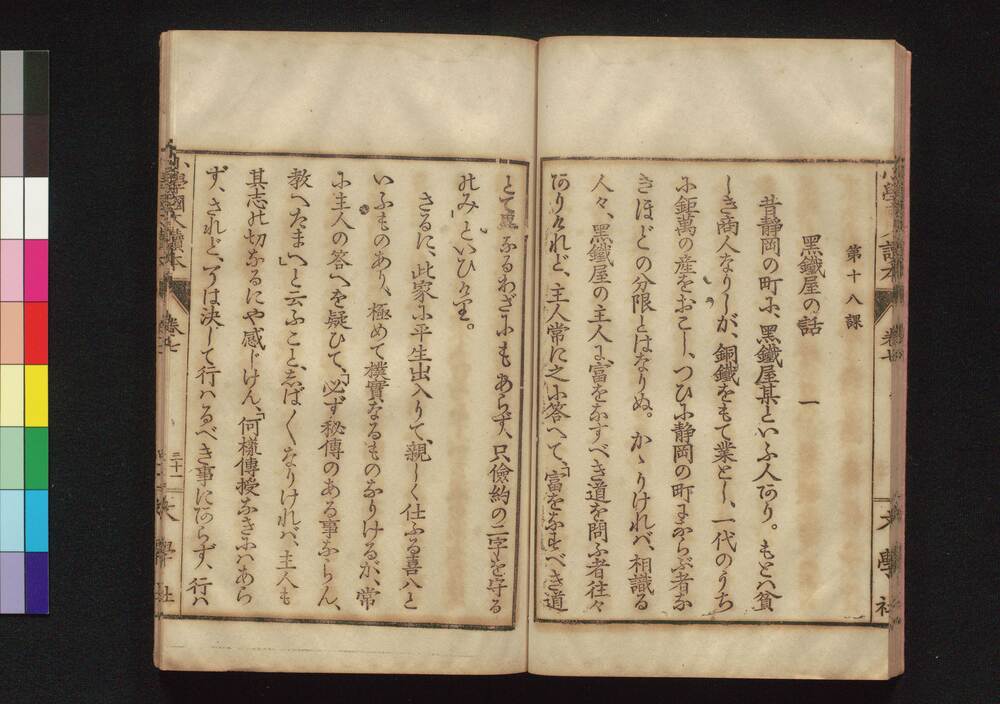 第十八課
黑鐵屋の話 一
昔靜岡の町に、黑鐵屋某といふ人あり。もとハ貧
しき商人なりしが、銅鐵をもて業とし、一代のうち
に鉅萬の産をおこし、つひに靜岡の町にならぶ者な
きほどの分限とはなりぬ。かゝりければ、相識る
人々、黑鐵屋の主人に富をなすべき道を問ふ者往々
ありけれど、主人常に之に答へて、「富をなすべき道
とて異なるわざにもあらず、只儉約の二字を守る
のみ」といひけり。
さるに、此家に平生出入りて、親しく仕ふる喜八と
いふものあり、極めて樸實なるものなりけるが、常
に主人の答へを疑ひて、「必ず秘傳のある事ならん、
教へたまへ」と云ふことしば〱なりければ、主人も
其志の切なるにや感じけん、「何樣傳授なきにハあら
ず、されど、こは決して行ハるべき事にあらず、行ハ
小學國文讀本
卷七
三十一
文學社
文學社